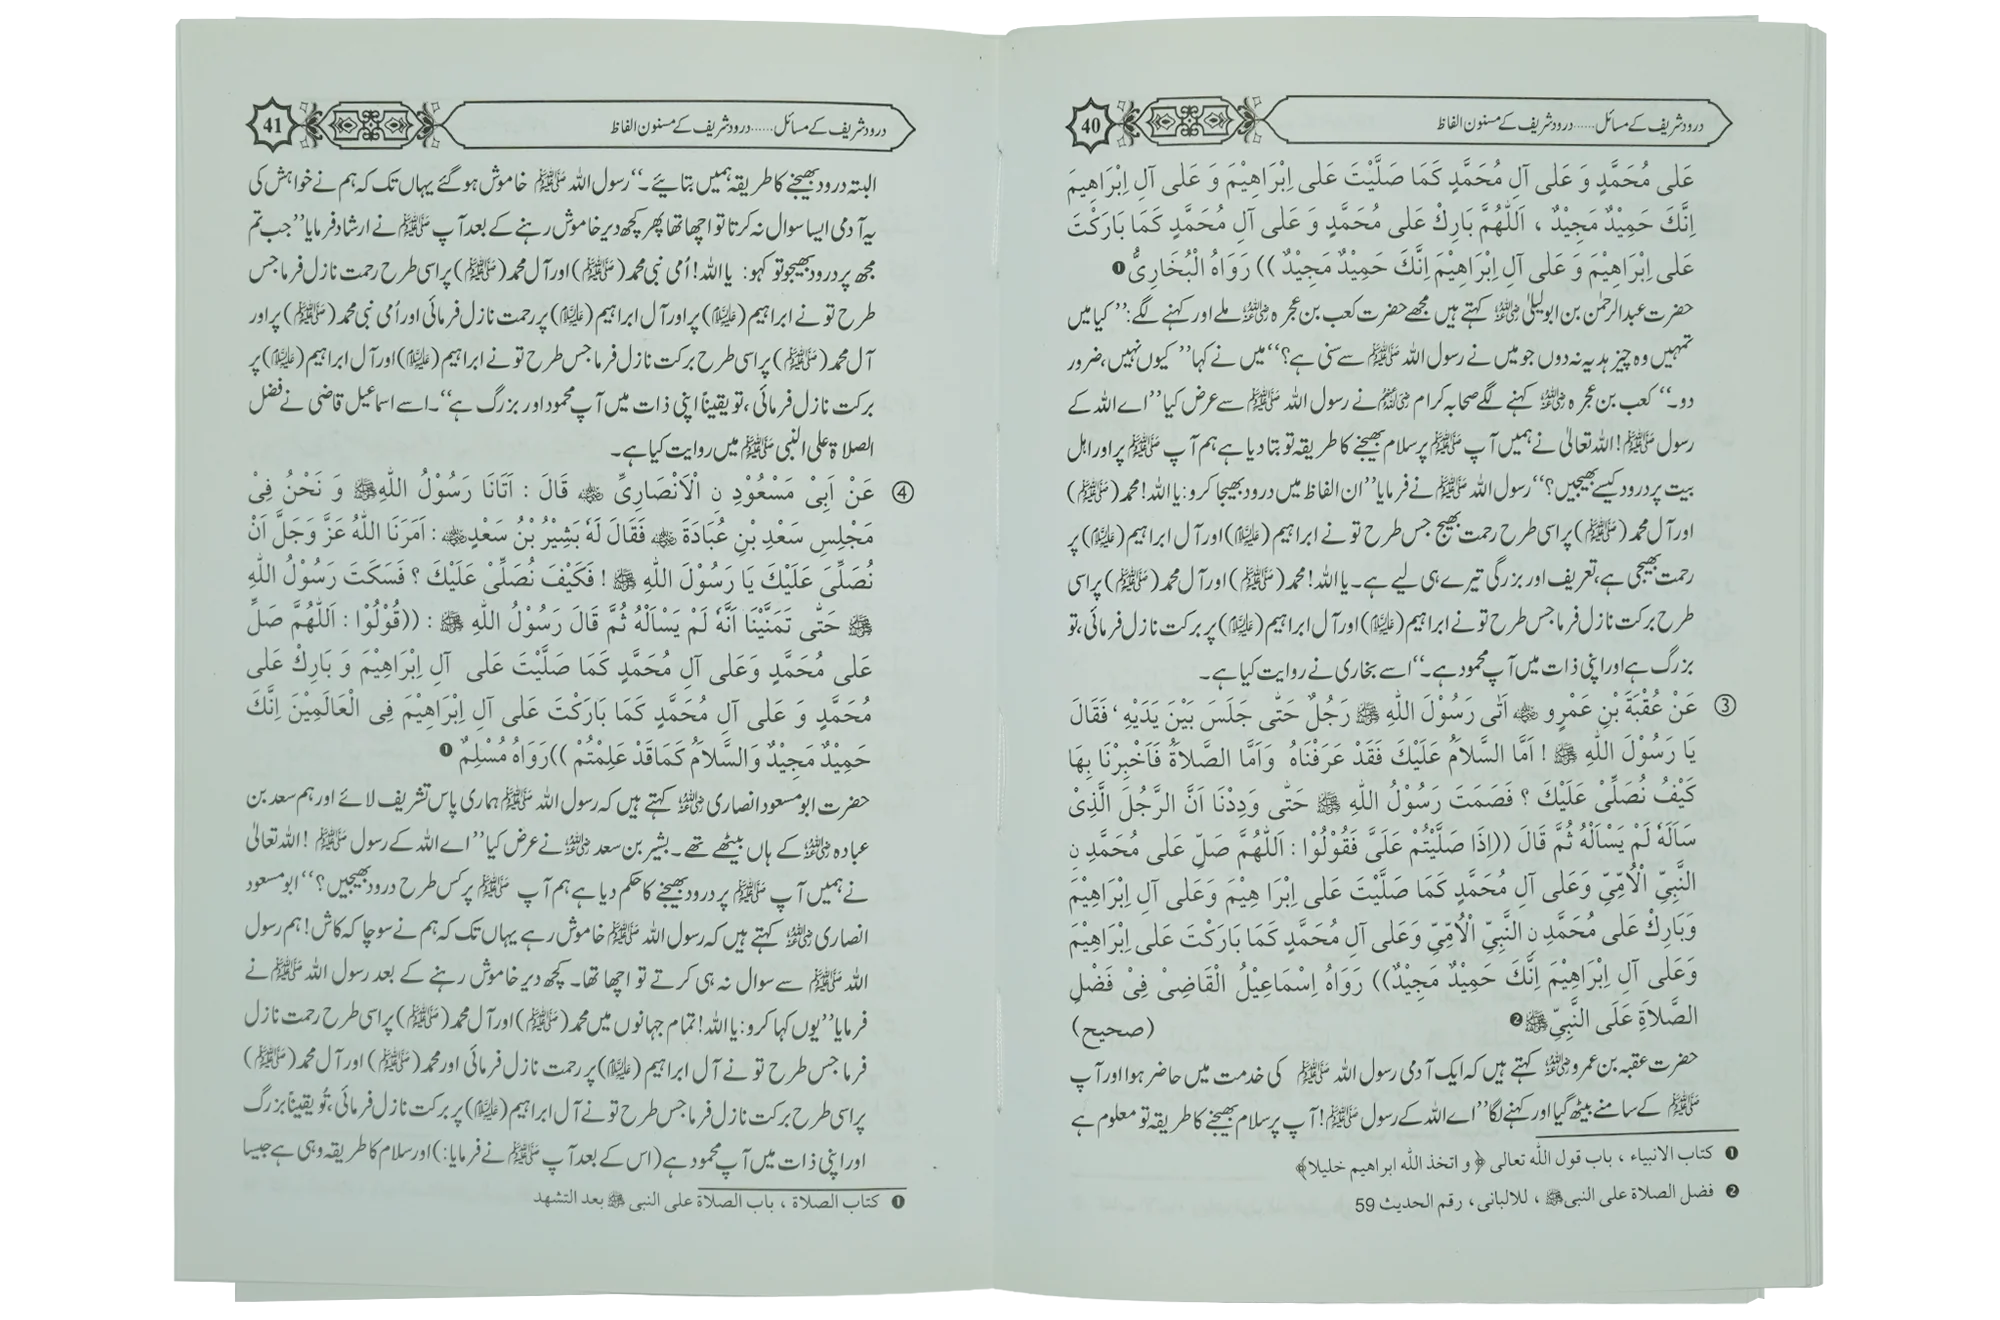 40
درود شریف کے مسائل ..... درود شریف کے مسنون الفاظ
عَلٰی مُحَمَّدٍ وَ عَلٰی آلِ مُحَمَّدٍ كَمَا صَلَّيْتَ عَلٰی اِبْرَاهِيْمَ وَ عَلٰی آلِ اِبْرَاهِيْمَ
اِنَّكَ حَمِيْدٌ مَجِيْدٌ ، اَللّٰهُمَّ بَارِكْ عَلٰی مُحَمَّدٍ وَ عَلٰی آلِ مُحَمَّدٍ كَمَا بَارَكْتَ
عَلٰی اِبْرَاهِيْمَ وَ عَلٰی آلِ اِبْرَاهِيْمَ اِنَّكَ حَمِيْدٌ مَجِيْدٌ )) رَوَاهُ الْبُخَارِیُّ ❶
حضرت عبدالرحمٰن بن ابو لیلیٰ رضی اللہ عنہ کہتے ہیں مجھے حضرت کعب بن عجرہ رضی اللہ عنہ ملے اور کہنے لگے: ’’کیا میں
تمہیں وہ چیز ہدیہ نہ دوں جو میں نے رسول اللہ ﷺ سے سنی ہے؟‘‘ میں نے کہا ’’کیوں نہیں، ضرور
دو۔‘‘ کعب بن عجرہ رضی اللہ عنہ کہنے لگے صحابہ کرام رضی اللہ عنہم نے رسول اللہ ﷺ سے عرض کیا ’’اے اللہ کے
رسول ﷺ! اللہ تعالیٰ نے ہمیں آپ ﷺ پر سلام بھیجنے کا طریقہ تو بتا دیا ہے ہم آپ ﷺ پر اور اہل
بیت پر درود کیسے بھیجیں؟‘‘ رسول اللہ ﷺ نے فرمایا ’’ان الفاظ میں درود بھیجا کرو: یا اللہ! محمد (ﷺ)
اور آل محمد (ﷺ) پر اسی طرح رحمت بھیج جس طرح تو نے ابراہیم (علیہ السلام) اور آل ابراہیم (علیہ السلام) پر
رحمت بھیجی ہے، تعریف اور بزرگی تیرے ہی لیے ہے۔ یا اللہ! محمد (ﷺ) اور آل محمد (ﷺ) پر اسی
طرح برکت نازل فرما جس طرح تو نے ابراہیم (علیہ السلام) اور آل ابراہیم (علیہ السلام) پر برکت نازل فرمائی، تو
بزرگ ہے اور اپنی ذات میں آپ محمود ہے۔‘‘ اسے بخاری نے روایت کیا ہے۔
③ عَنْ عُقْبَةَ بْنِ عَمْرٍو رضی اللہ عنہ اَتٰی رَسُوْلَ اللّٰهِ ﷺ رَجُلٌ حَتّٰی جَلَسَ بَيْنَ يَدَيْهِ ، فَقَالَ
يَا رَسُوْلَ اللّٰهِ ﷺ ! اَمَّا السَّلاَمُ عَلَيْكَ فَقَدْ عَرَفْنَاهُ وَاَمَّا الصَّلاَةُ فَاَخْبِرْنَا بِهَا
كَيْفَ نُصَلِّیْ عَلَيْكَ ؟ فَصَمَتَ رَسُوْلُ اللّٰهِ ﷺ حَتّٰی وَدِدْنَا اَنَّ الرَّجُلَ الَّذِیْ
سَاَلَهُ لَمْ يَسْاَلْهُ ثُمَّ قَالَ ((اِذَا صَلَّيْتُمْ عَلَیَّ فَقُوْلُوْا : اَللّٰهُمَّ صَلِّ عَلٰی مُحَمَّدِ نِ
النَّبِیِّ الْاُمِّیِّ وَعَلٰی آلِ مُحَمَّدٍ كَمَا صَلَّيْتَ عَلٰی اِبْرَاهِيْمَ وَعَلٰی آلِ اِبْرَاهِيْمَ
وَبَارِكْ عَلٰی مُحَمَّدِ نِ النَّبِیِّ الْاُمِّیِّ وَعَلٰی آلِ مُحَمَّدٍ كَمَا بَارَكْتَ عَلٰی اِبْرَاهِيْمَ
وَعَلٰی آلِ اِبْرَاهِيْمَ اِنَّكَ حَمِيْدٌ مَجِيْدٌ)) رَوَاهُ اِسْمَاعِيْلُ الْقَاضِیْ فِیْ فَضْلِ
الصَّلاَةِ عَلَی النَّبِیِّ ﷺ ❷ (صحیح)
حضرت عقبہ بن عمرو رضی اللہ عنہ کہتے ہیں کہ ایک آدمی رسول اللہ ﷺ کی خدمت میں حاضر ہوا اور آپ
ﷺ کے سامنے بیٹھ گیا اور کہنے لگا ’’اے اللہ کے رسول ﷺ! آپ پر سلام بھیجنے کا طریقہ تو معلوم ہے
❶ كتاب الانبياء ، باب قول الله تعالى ﴿ و اتخذ الله ابراهيم خليلا﴾
❷ فضل الصلاة على النبى ﷺ ، للالبانى ، رقم الحديث 59
41
درود شریف کے مسائل ..... درود شریف کے مسنون الفاظ
البتہ درود بھیجنے کا طریقہ ہمیں بتائیے۔‘‘ رسول اللہ ﷺ خاموش ہو گئے یہاں تک کہ ہم نے خواہش کی
یہ آدمی ایسا سوال نہ کرتا تو اچھا تھا پھر کچھ دیر خاموش رہنے کے بعد آپ ﷺ نے ارشاد فرمایا ’’جب تم
مجھ پر درود بھیجو تو کہو: یا اللہ! اُمی نبی محمد (ﷺ) اور آل محمد (ﷺ) پر اسی طرح رحمت نازل فرما جس
طرح تو نے ابراہیم (علیہ السلام) پر اور آل ابراہیم (علیہ السلام) پر رحمت نازل فرمائی اور اُمی نبی محمد (ﷺ) پر اور
آل محمد (ﷺ) پر اسی طرح برکت نازل فرما جس طرح تو نے ابراہیم (علیہ السلام) اور آل ابراہیم (علیہ السلام) پر
برکت نازل فرمائی، تو یقیناً اپنی ذات میں آپ محمود اور بزرگ ہے‘‘۔ اسے اسماعیل قاضی نے فضل
الصلاۃ علی النبی ﷺ میں روایت کیا ہے۔
④ عَنْ اَبِیْ مَسْعُوْدِ نِ الْاَنْصَارِیِّ رضی اللہ عنہ قَالَ : اَتَانَا رَسُوْلُ اللّٰهِ ﷺ وَ نَحْنُ فِیْ
مَجْلِسِ سَعْدِ بْنِ عُبَادَةَ رضی اللہ عنہ فَقَالَ لَهُ بَشِيْرُ بْنُ سَعْدٍ رضی اللہ عنہ : اَمَرَنَا اللّٰهُ عَزَّ وَجَلَّ اَنْ
نُصَلِّیَ عَلَيْكَ يَا رَسُوْلَ اللّٰهِ ﷺ ! فَكَيْفَ نُصَلِّیْ عَلَيْكَ ؟ فَسَكَتَ رَسُوْلُ اللّٰهِ
ﷺ حَتّٰی تَمَنَّيْنَا اَنَّهُ لَمْ يَسْاَلْهُ ثُمَّ قَالَ رَسُوْلُ اللّٰهِ ﷺ : ((قُوْلُوْا : اَللّٰهُمَّ صَلِّ
عَلٰی مُحَمَّدٍ وَعَلٰی آلِ مُحَمَّدٍ كَمَا صَلَّيْتَ عَلٰی آلِ اِبْرَاهِيْمَ وَ بَارِكْ عَلٰی
مُحَمَّدٍ وَ عَلٰی آلِ مُحَمَّدٍ كَمَا بَارَكْتَ عَلٰی آلِ اِبْرَاهِيْمَ فِی الْعَالَمِيْنَ اِنَّكَ
حَمِيْدٌ مَجِيْدٌ وَالسَّلاَمُ كَمَا قَدْ عَلِمْتُمْ ))رَوَاهُ مُسْلِمٌ ❶
حضرت ابو مسعود انصاری رضی اللہ عنہ کہتے ہیں کہ رسول اللہ ﷺ ہماری پاس تشریف لائے اور ہم سعد بن
عبادہ رضی اللہ عنہ کے ہاں بیٹھے تھے۔ بشیر بن سعد رضی اللہ عنہ نے عرض کیا ’’اے اللہ کے رسول ﷺ! اللہ تعالیٰ
نے ہمیں آپ ﷺ پر درود بھیجنے کا حکم دیا ہے ہم آپ ﷺ پر کس طرح درود بھیجیں؟‘‘ ابو مسعود
انصاری رضی اللہ عنہ کہتے ہیں کہ رسول اللہ ﷺ خاموش رہے یہاں تک کہ ہم نے سوچا کہ کاش! ہم رسول
اللہ ﷺ سے سوال نہ ہی کرتے تو اچھا تھا۔ کچھ دیر خاموش رہنے کے بعد رسول اللہ ﷺ نے
فرمایا ’’یوں کہا کرو: یا اللہ! تمام جہانوں میں محمد (ﷺ) اور آل محمد (ﷺ) پر اسی طرح رحمت نازل
فرما جس طرح تو نے آل ابراہیم (علیہ السلام) پر رحمت نازل فرمائی اور محمد (ﷺ) اور آل محمد (ﷺ)
پر اسی طرح برکت نازل فرما جس طرح تو نے آل ابراہیم (علیہ السلام) پر برکت نازل فرمائی، تُو یقیناً بزرگ
اور اپنی ذات میں آپ محمود ہے (اس کے بعد آپ ﷺ نے فرمایا:) اور سلام کا طریقہ وہی ہے جیسا
❶ كتاب الصلاة ، باب الصلاة على النبى ﷺ بعد التشهد